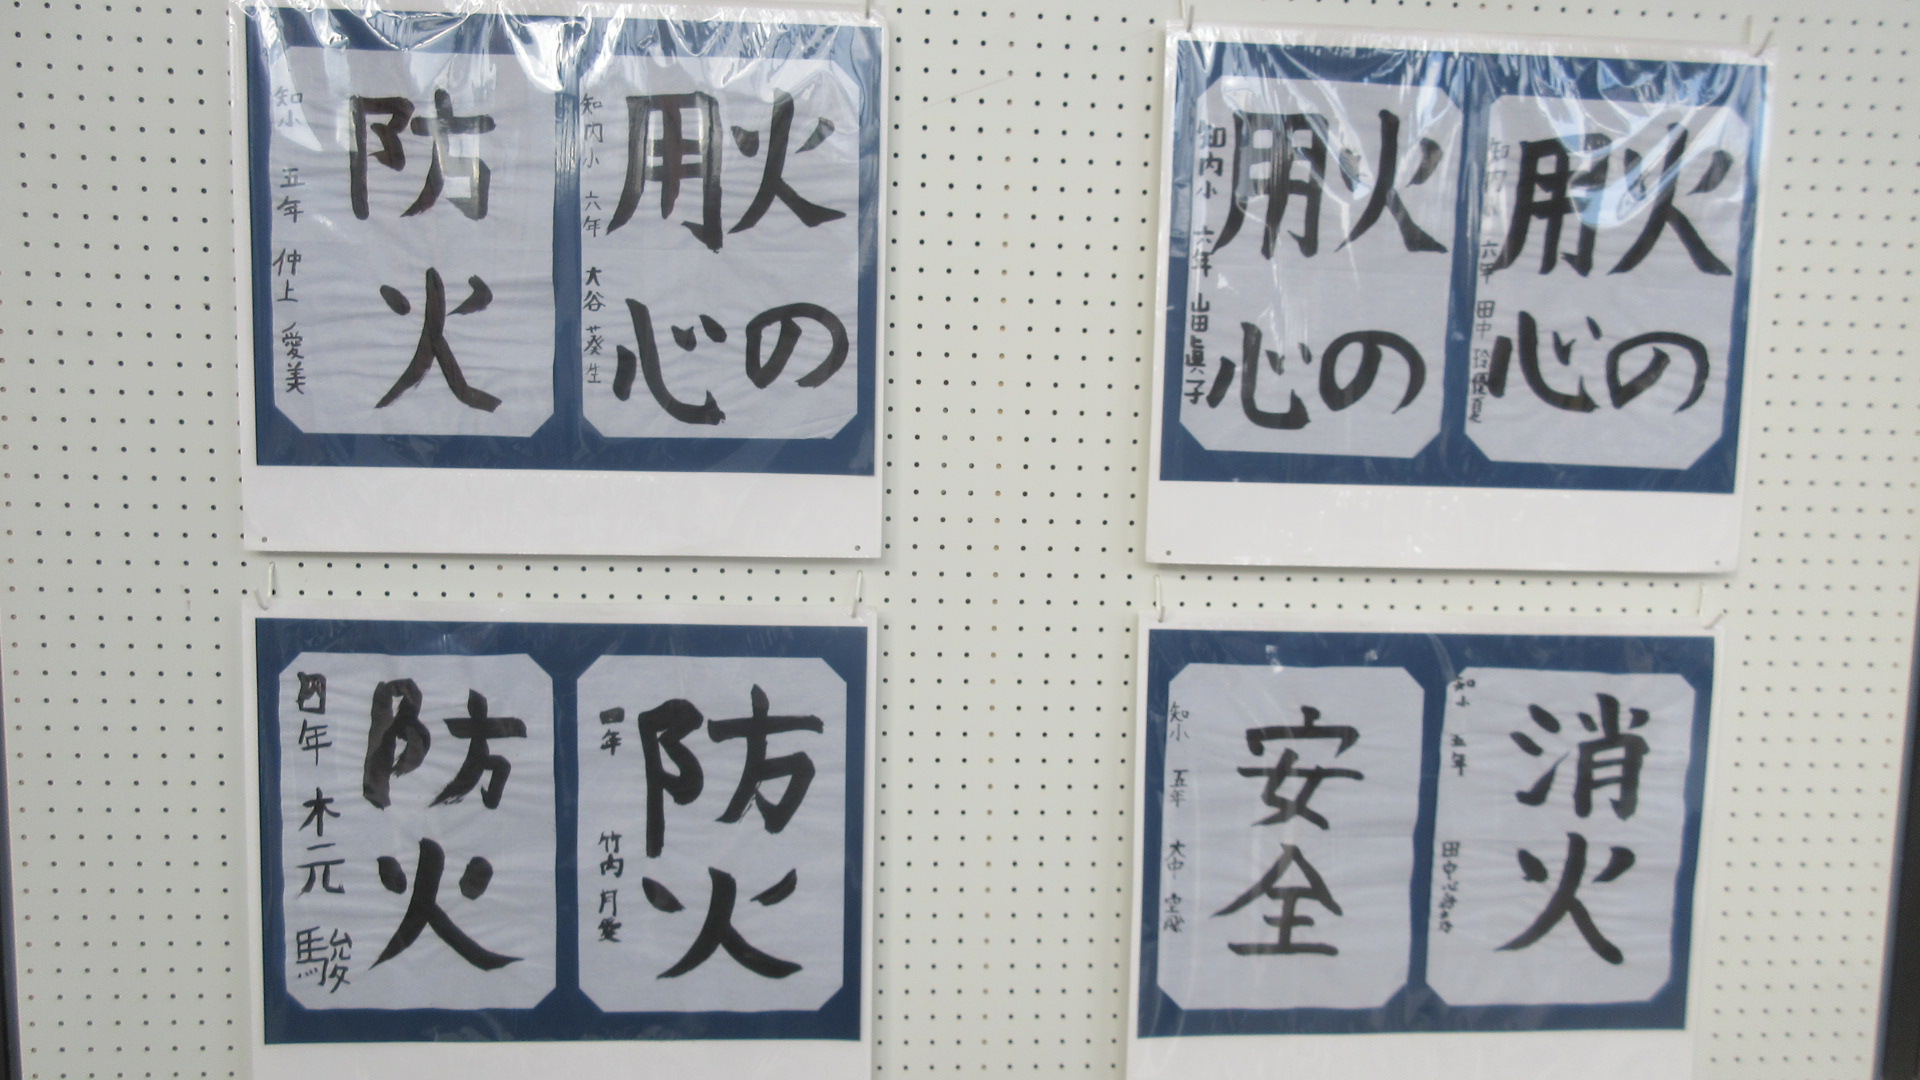 火の
用心
知内小 六年 大谷 葵生
防火
知小 五年 仲上 愛美
火の
用心
知内小 六年 田中
火の
用心
知内小 六年 山田眞子
防火
四年 竹内 月愛
防火
四年 木元 駿
消火
知小 五年 田中心
安全
知小 五年 大中